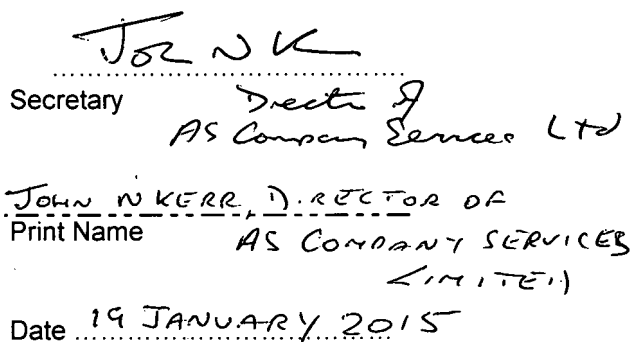 John K
Secretary Director of
AS Company Services Ltd
JOHN N KERR, DIRECTOR OF
Print Name AS COMPANY SERVICES
LIMITED
Date 19 JANUARY 2015